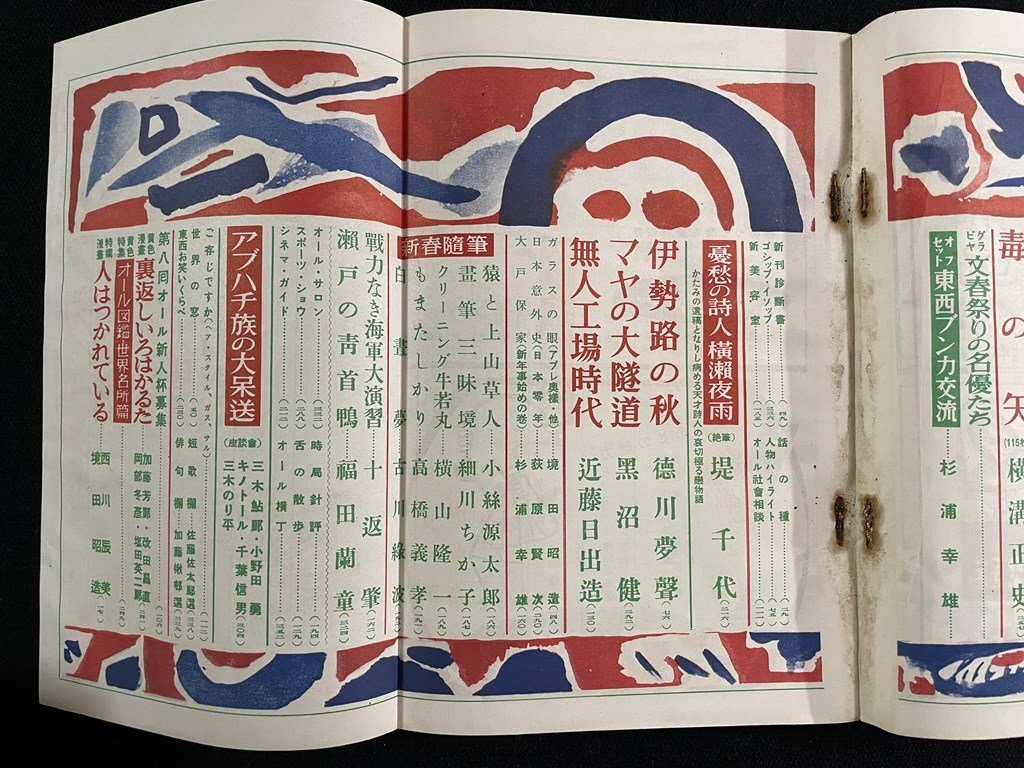 毒の矢
(115枚)
横溝正史
グラビヤ 文春祭りの名優たち
オフセット 東西ブンカ交流
杉浦幸雄
新刊診断書
話の種
ゴシップ・イソップ
人物ハイライト
新美容室
オール社會相談
憂愁の詩人 横瀬夜雨
(絶筆)
堤千代
かたみの遺稿となりし病める天才詩人の哀切極る戀物語
伊勢路の秋
徳川夢聲
マヤの大隧道
黑沼健
無人工場時代
近藤日出造
ガラスの眼(アプレ奥様・他)
境田昭造
日本意外史(日本零年)
荻原賢次
大戸保家(新年事始めの巻)
杉浦幸雄
新春隨筆
猿と上山草人
小絲源太郎
畫筆三昧境
細川ちか子
クリーニング牛若丸
横山隆一
もまたしかり
高橋義孝
白晝夢
古川綠波
戰力なき海軍大演習
十返肇
瀬戸の靑首鴨
福田蘭童
オール・サロン
時局針評
スポーツ・ショウ
舌の散歩
シネマ・ガイド
オール横丁
アブハチ族の大呆送
(座談會)
三木鮎郎・小野田勇
キノトール・千葉信男
三木のり平
ご存じですか(ア・スタイル、ガス、サル)
世界の窓
短歌欄
佐藤佐太郎選
東西お笑いくらべ
俳句欄
加藤楸邨選
第八回オール新人杯募集
黄色漫畫 裏返しいろはかるた
加藤芳郎・改田昌直
岡部冬彦・塩田英二郎
黄色特集 オール図鑑・世界名所篇
特構漫畫 人はつかれている
西川辰美
境田昭造